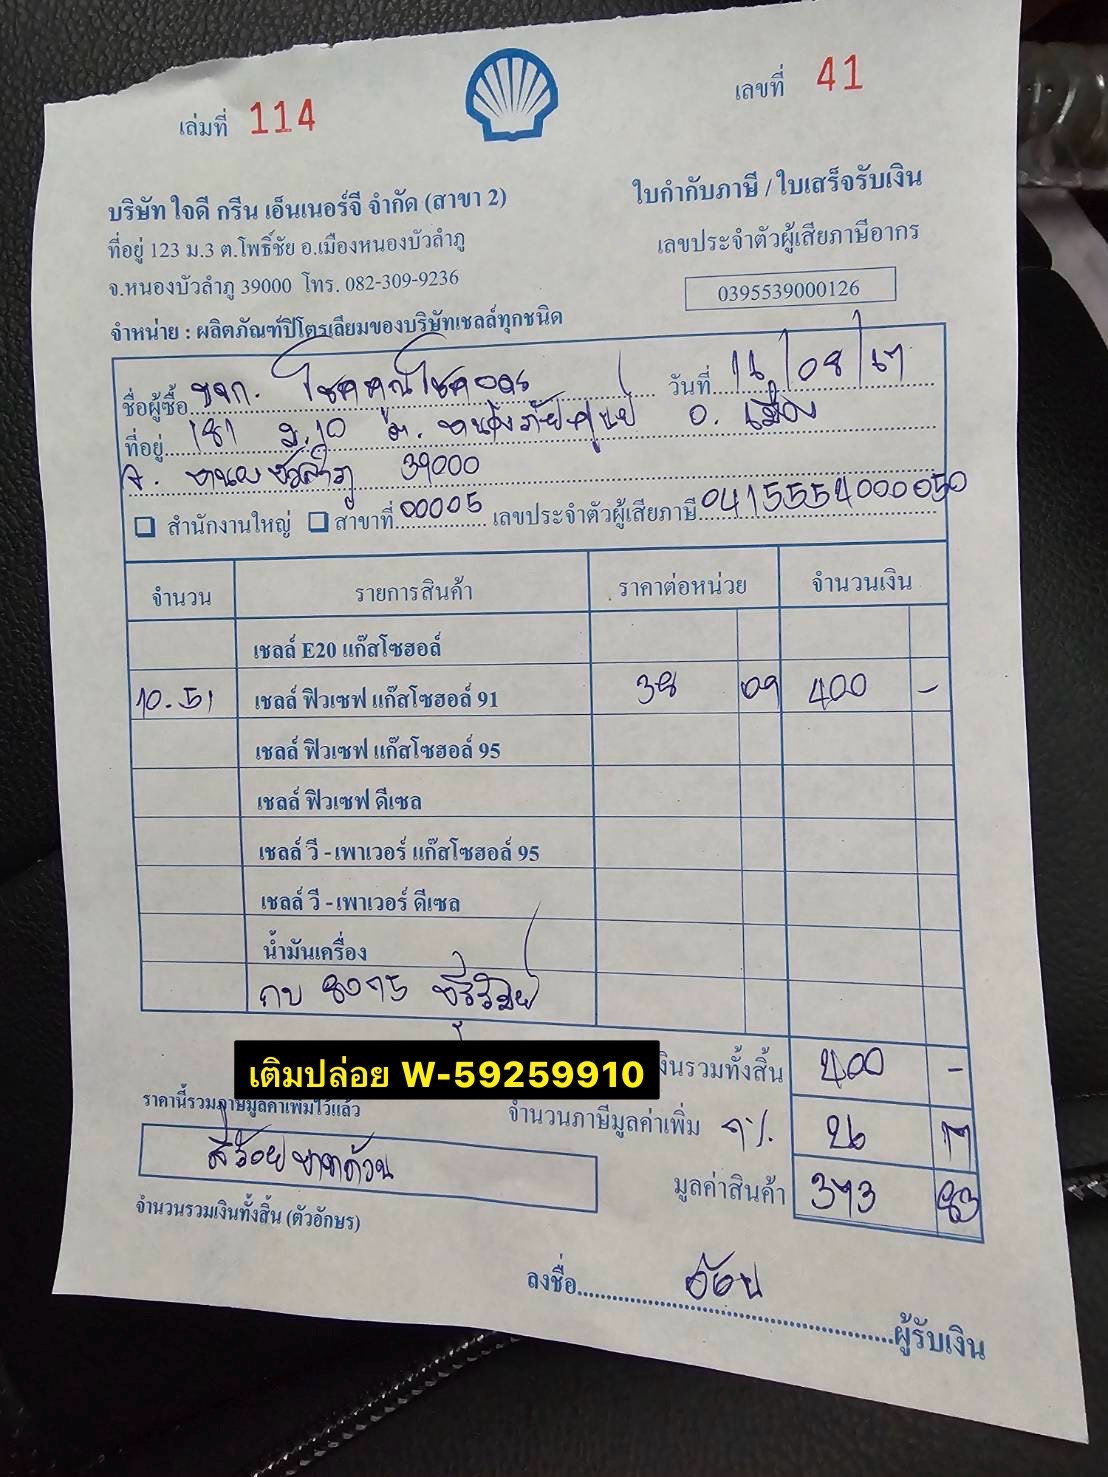 เล่มที่ 114
เลขที่ 41
บริษัท ใจดี กรีน เอ็นเนอร์จี จำกัด (สาขา 2)
ใบกำกับภาษี / ใบเสร็จรับเงิน
ที่อยู่ 123 ม.3 ต.โพธิ์ชัย อ.เมืองหนองบัวลำภู
เลขประจำตัวผู้เสียภาษีอากร
จ.หนองบัวลำภู 39000 โทร. 082-309-9236
0395539000126
จำหน่าย : ผลิตภัณฑ์ปิโตรเลียมของบริษัทเชลล์ทุกชนิด
ชื่อผู้ซื้อ หจก. โชคคูณโชค วันที่ /08/67
ที่อยู่ 181 ม.10 ต. หนองภัยศูนย์ อ. เมือง
จ. หนองบัวลำภู 39000
สำนักงานใหญ่ สาขาที่ 00005 เลขประจำตัวผู้เสียภาษี 0415554000050
จำนวน รายการสินค้า ราคาต่อหน่วย จำนวนเงิน
เชลล์ E20 แก๊สโซฮอล์
10.51 เชลล์ ฟิวเซฟ แก๊สโซฮอล์ 91 38 09 400 -
เชลล์ ฟิวเซฟ แก๊สโซฮอล์ 95
เชลล์ ฟิวเซฟ ดีเซล
เชลล์ วี - เพาเวอร์ แก๊สโซฮอล์ 95
เชลล์ วี - เพาเวอร์ ดีเซล
น้ำมันเครื่อง
กบ 8075 บุรีรัมย์
เติมปล่อย W-59259910
เงินรวมทั้งสิ้น 400 -
ราคานี้รวมภาษีมูลค่าเพิ่มไว้แล้ว
จำนวนภาษีมูลค่าเพิ่ม 7%. 26 17
สี่ร้อยบาทถ้วน
มูลค่าสินค้า 373 83
จำนวนรวมเงินทั้งสิ้น (ตัวอักษร)
ลงชื่อ อ้อย ผู้รับเงิน